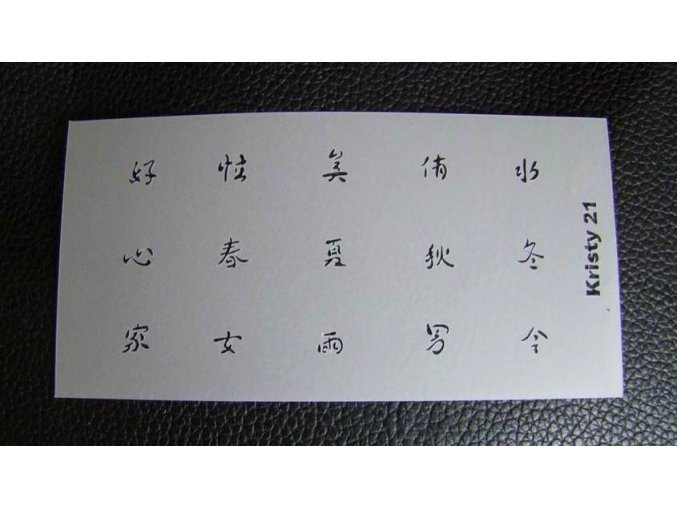 好 怯 美 倩 水
心 春 夏 秋 冬
家 女 雨 男 令
Kristy 21